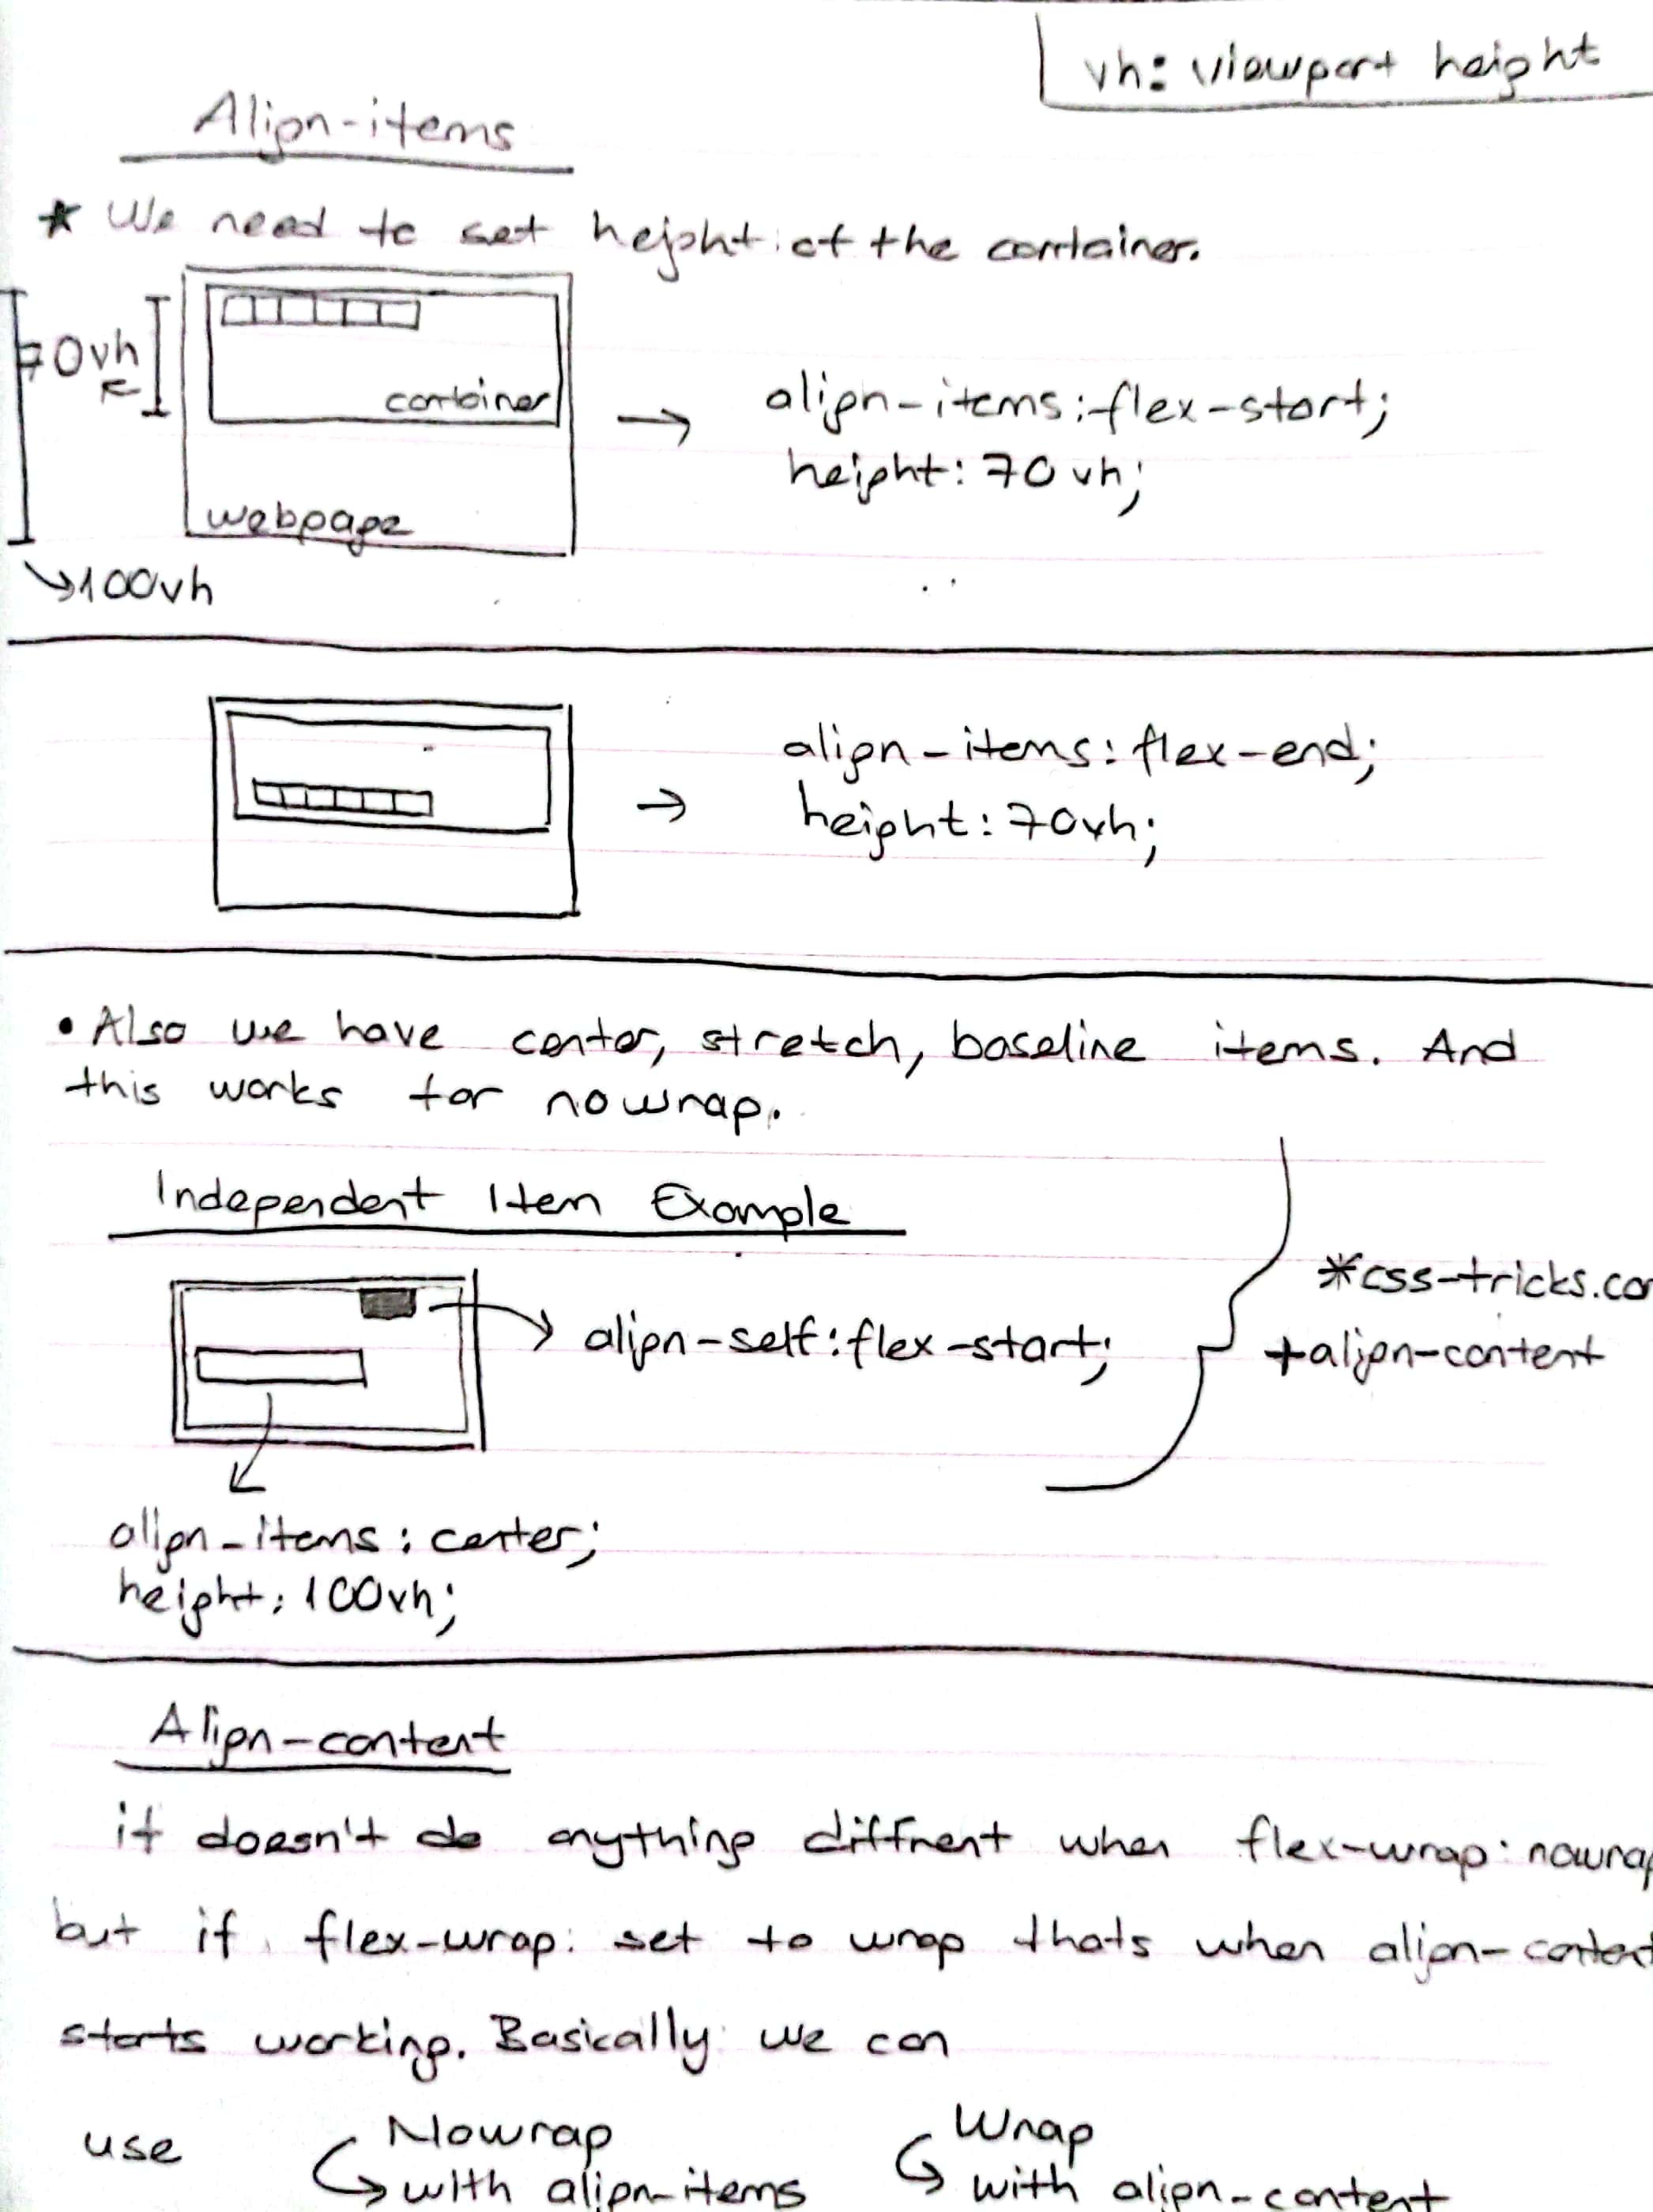 vh: viewport height
Align-items
* We need to set height of the container.
70vh
container
align-items: flex-start;
height: 70vh;
webpage
100vh
align-items: flex-end;
height: 70vh;
• Also we have center, stretch, baseline items. And
this works for nowrap.
Independent Item Example
*css-tricks.co
align-self: flex-start;
+align-content
align-items: center;
height: 100vh;
Align-content
it doesn't do anything diffrent when flex-wrap: nowrap
but if flex-wrap: set to wrap thats when align-content
starts working. Basically we can
use Nowrap Wrap
with align-items with align-content